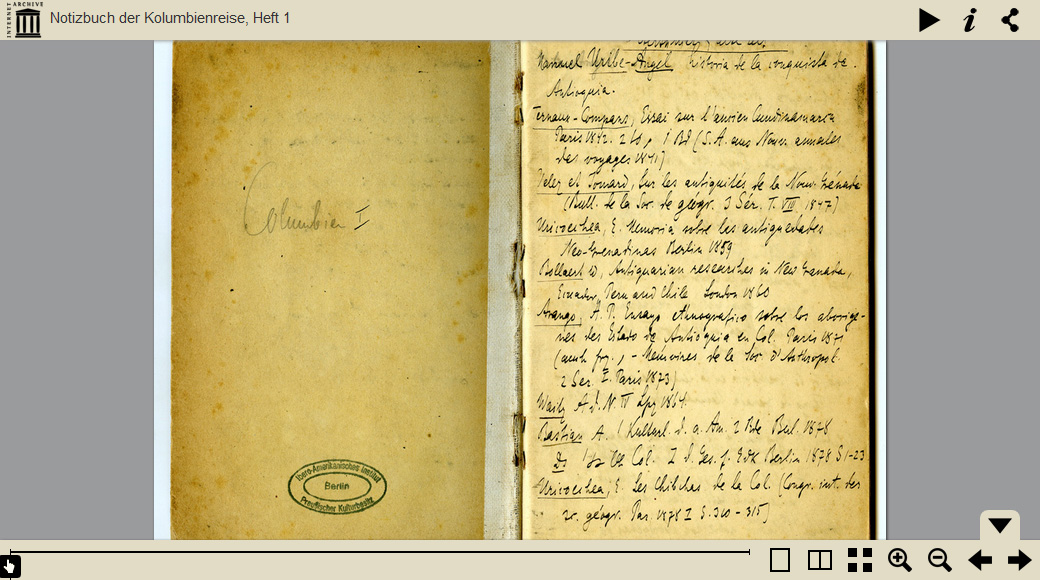 INTERNET ARCHIVE
Notizbuch der Kolumbienreise, Heft 1
Columbien I
Ibero-Amerikanisches Institut
Berlin
Preußischer Kulturbesitz
Manuel Uribe-Angel historia de la conquista de
Antioquia.
Ternaux-Compans, Essai sur l'ancien Cundinamarca
Paris 1842. 1 Bd (S.A. aus Nouv. annales
des voyages 1841)
Velez et Jomard, Sur les antiquités de la Nouv. Grénade
(Bull. de la Soc. de géogr. 3 Sér. T. VIII, 1847)
Uricoechea, E. Memoria sobre las antiguedades
Neo-Grenadinas Berlin 1859
Bollaert W, Antiquarian researches in New Granada,
Ecuador, Peru and Chile London 1860
Arango, A. P. Ensayo ethnografico sobre los aborige-
nes del Estado de Antioquia en Col. Paris 1871
(auch frz., - Mémoires de la Soc. d'Anthropol.
2 Ser. I. Paris 1873)
Waitz A. d. N. IV Lpz 1864
Bastian A. (Kulturl. d. a. Am. 2 Bde Berl. 1878
Ds Col. Z d. Ges. f. Edk Berlin 1878 S 1-23
Uricoechea, E. Les Chibchas de la Col. (Congr. int. des
sc. géogr. Par. 1878 I S. 310-315)